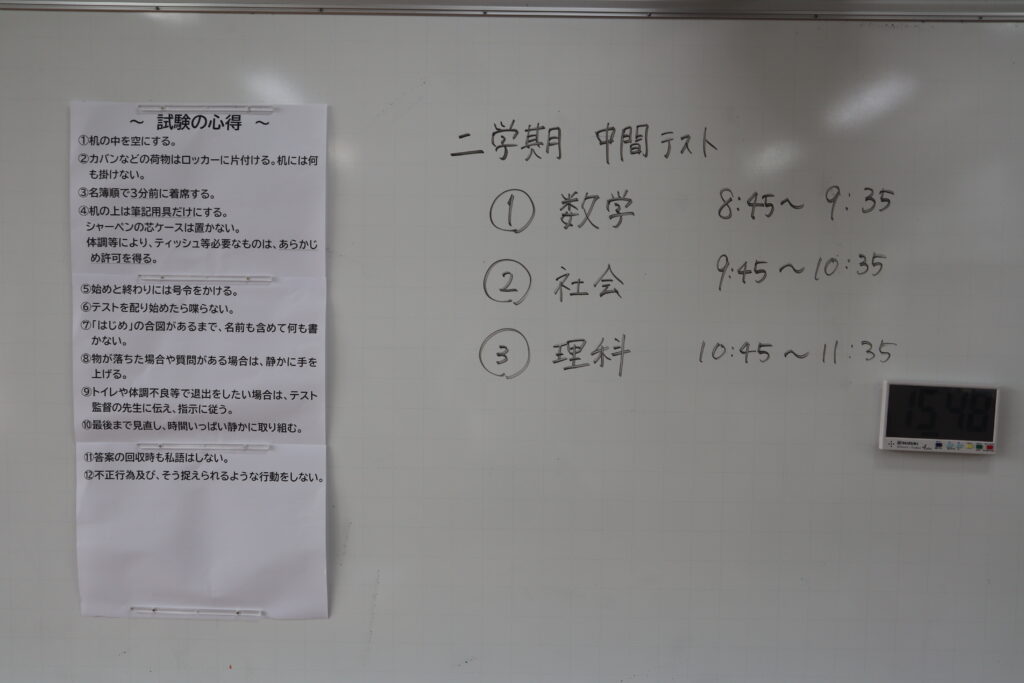 ～ 試験の心得 ～
①机の中を空にする。
②カバンなどの荷物はロッカーに片付ける。机には何
も掛けない。
③名簿順で3分前に着席する。
④机の上は筆記用具だけにする。
シャーペンの芯ケースは置かない。
体調等により、ティッシュ等必要なものは、あらかじ
め許可を得る。
⑤始めと終わりには号令をかける。
⑥テストを配り始めたら喋らない。
⑦「はじめ」の合図があるまで、名前も含めて何も書
かない。
⑧物が落ちた場合や質問がある場合は、静かに手を
上げる。
⑨トイレや体調不良等で退出をしたい場合は、テスト
監督の先生に伝え、指示に従う。
⑩最後まで見直し、時間いっぱい静かに取り組む。
⑪答案の回収時も私語はしない。
⑫不正行為及び、そう捉えられるような行動をしない。
二学期 中間テスト
① 数学 8:45～ 9:35
② 社会 9:45～10:35
③ 理科 10:45～11:35
15 48